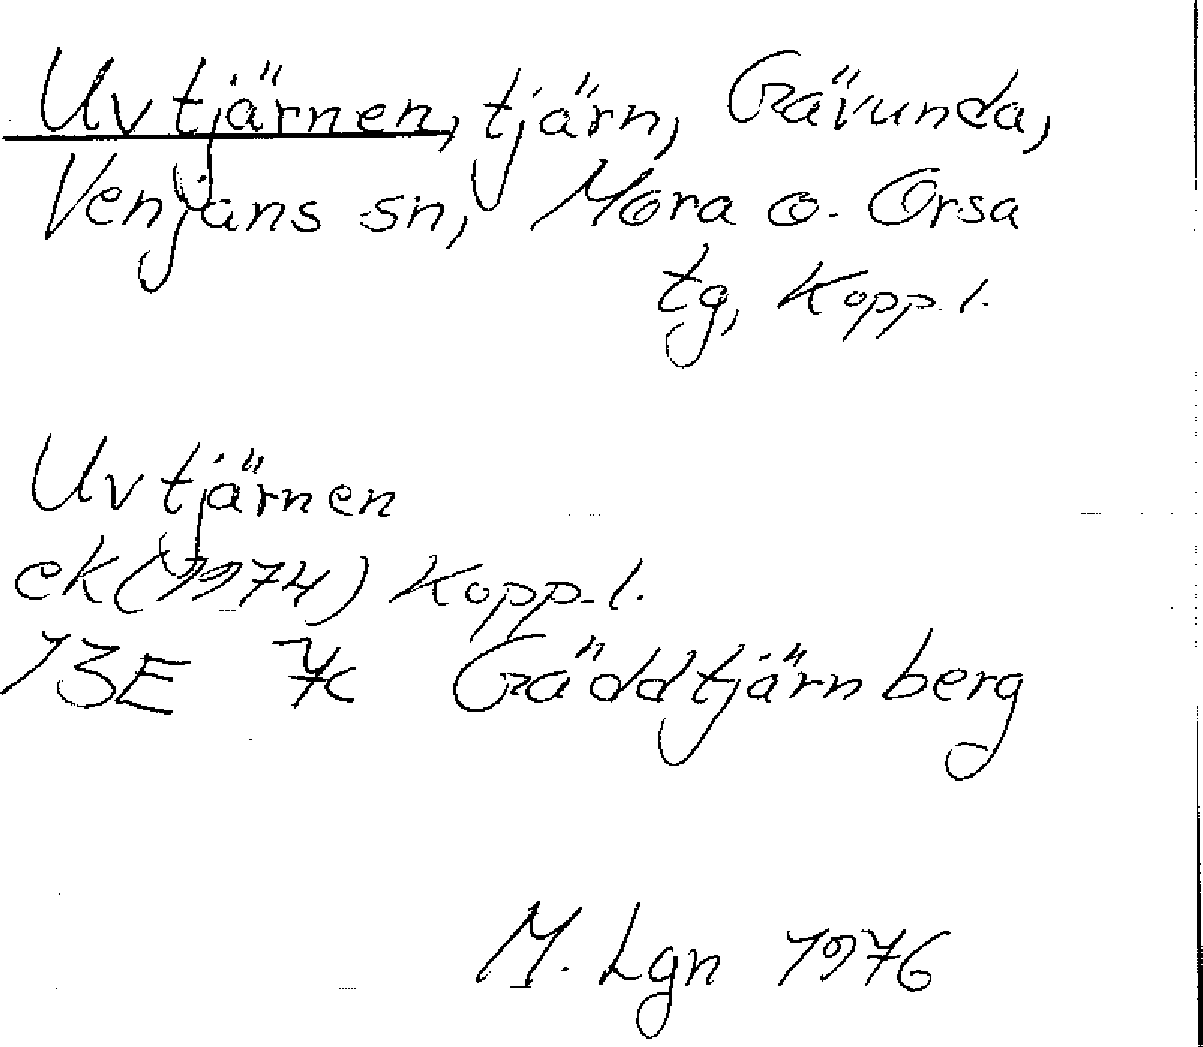 Uvtjärnen, tjärn, Gävunda,
Venjans sn, Mora o. Orsa
tg, Kopp. l.
Uvtjärnen
ek (1974) Kopp. l.
13E 7c Gäddtjärnberg
M. Lgn 1976